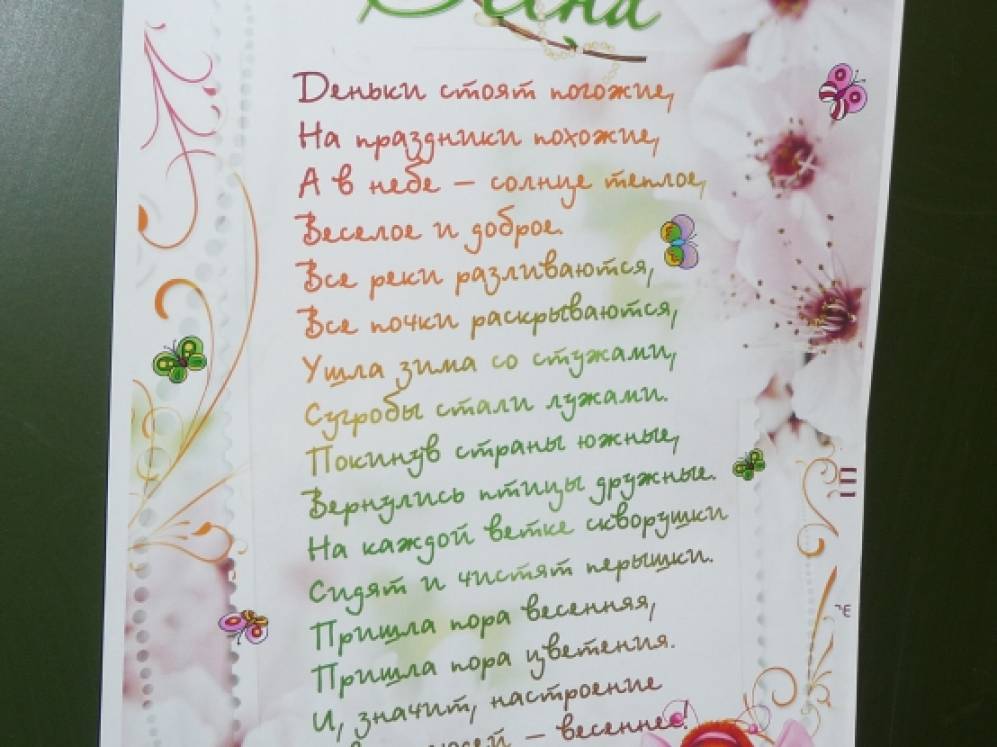 Весна
Деньки стоят погожие,
На праздники похожие,
А в небе – солнце теплое,
Веселое и доброе.
Все реки разливаются,
Все почки раскрываются,
Ушла зима со стужами,
Сугробы стали лужами.
Покинув страны южные,
Вернулись птицы дружные.
На каждой ветке скворушки
Сидят и чистят перышки.
Пришла пора весенняя,
Пришла пора цветения.
И, значит, настроение
– весеннее!